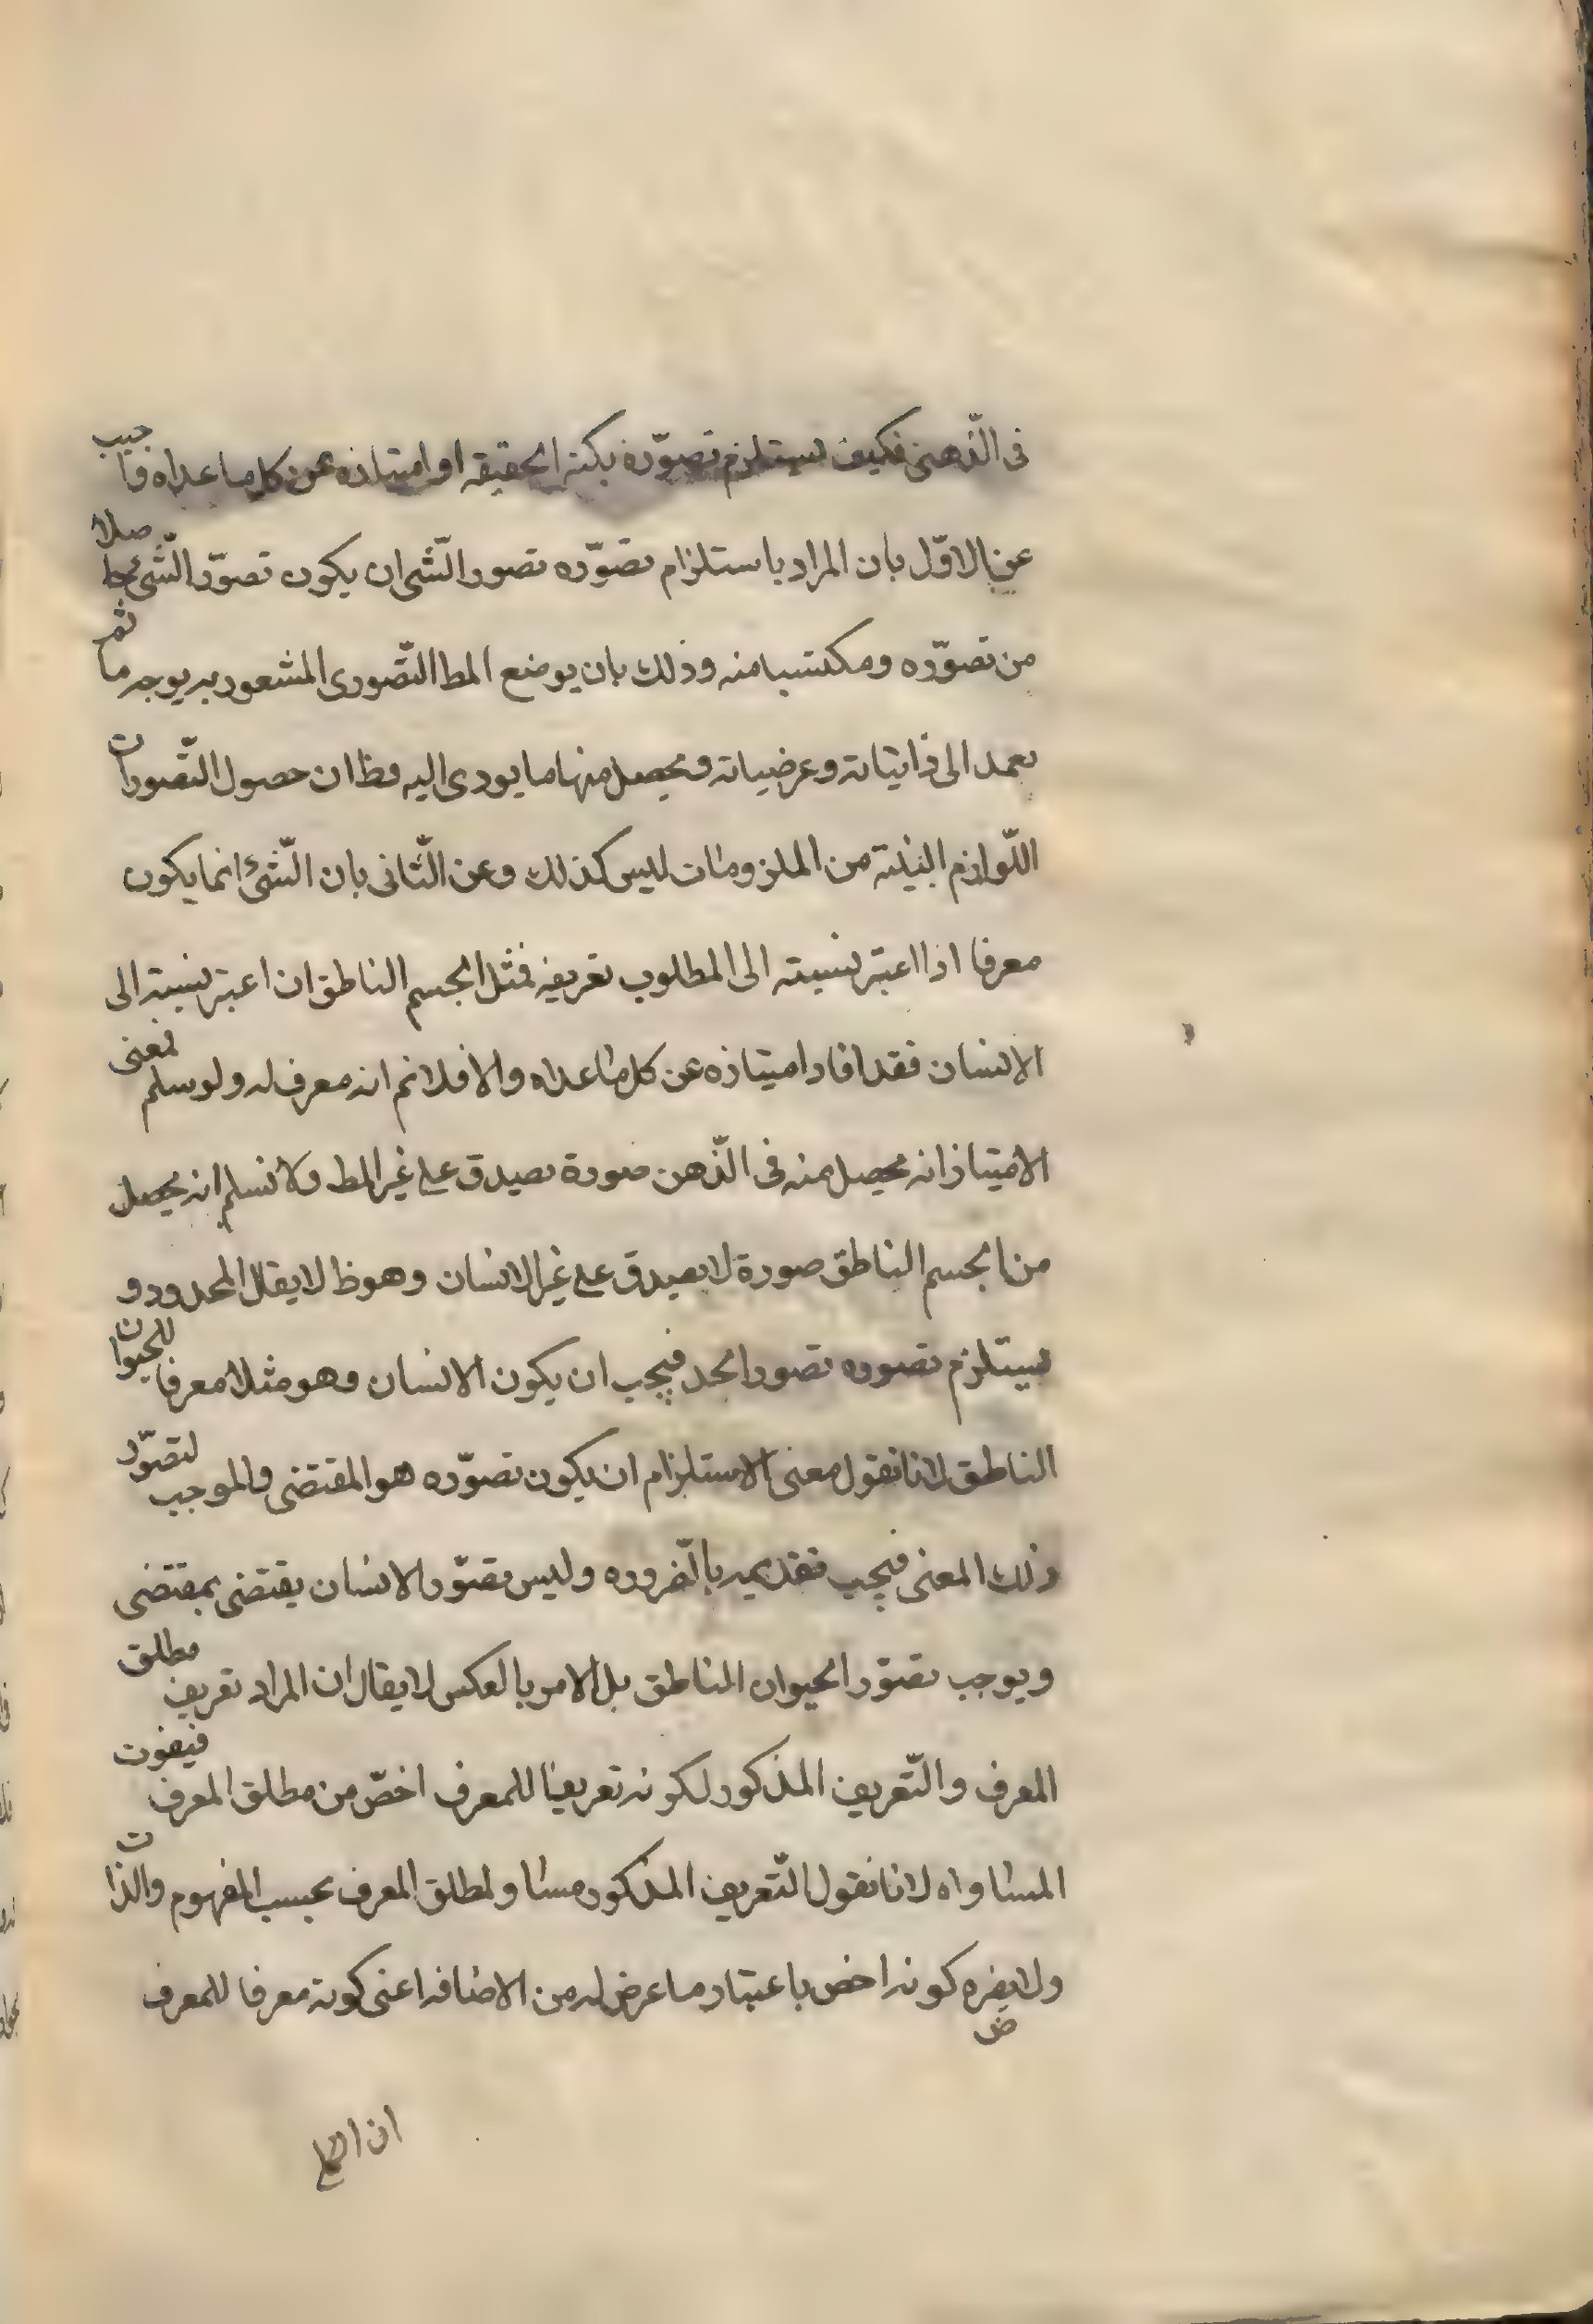 فى الذّهن فكيف يستلزم تصوّره بكنه الحقيقه او امتيازه عن كل ما عداه فاجيب
عن الاوّل بان المراد باستلزام تصوّره تصور الشّى ان يكون تصوّر الشّئ حاصلا
من تصوّره ومكتسبا منه وذلك بان يوضع المط التّصورى المشعور به بوجه ما ثم
يعمد الى ذاتياته وعرضياته ويحصل منها ما يودى اليه وظ ان حصول التّصورات
اللّوازم البينة من الملزومات ليس كذلك وعن الثّانى بان الشّئ انما يكون
معرفا اذا اعتبر نسبته الى المطلوب تعريفه فمثل الجسم الناطق ان اعتبر نسبته الى
الانسان فقد افاد امتيازه عن كل ما عداه والا فلا نم انه معرف له ولو سلم فمعنى
الامتياز انه يحصل منه فى الذّهن صورة تصدق على غير المط ولا نسلم انه يحصل
من الجسم الناطق صورة لا تصدق على غير الانسان وهو ظ لا يقال المحدود و
يستلزم تصوره تصور الحد فيجب ان يكون الانسان وهو مثلا معرفا للحيوان
الناطق لانا نقول معنى الاستلزام ان يكون تصوّره هو المقتضى والموجب لتصوّر
ذلك المعنى فيجب تقديمه بالضّروره وليس تصوّر الانسان يقتضى بمقتضى
ويوجب تصوّر الحيوان الناطق بل الامر بالعكس لا يقال ان المراد تعريف مطلق
المعرف والتّعريف المذكور لكونه تعريفا للمعرف اخصّ من مطلق المعرف فيفوت
المساواه لانا نقول التّعريف المذكور مساو لمطلق المعرف بحسب المفهوم والذات
ولا يضره كونه اخص باعتبار ما عرض له من الاضافه اعنى كونه معرفا للمعرف
ض